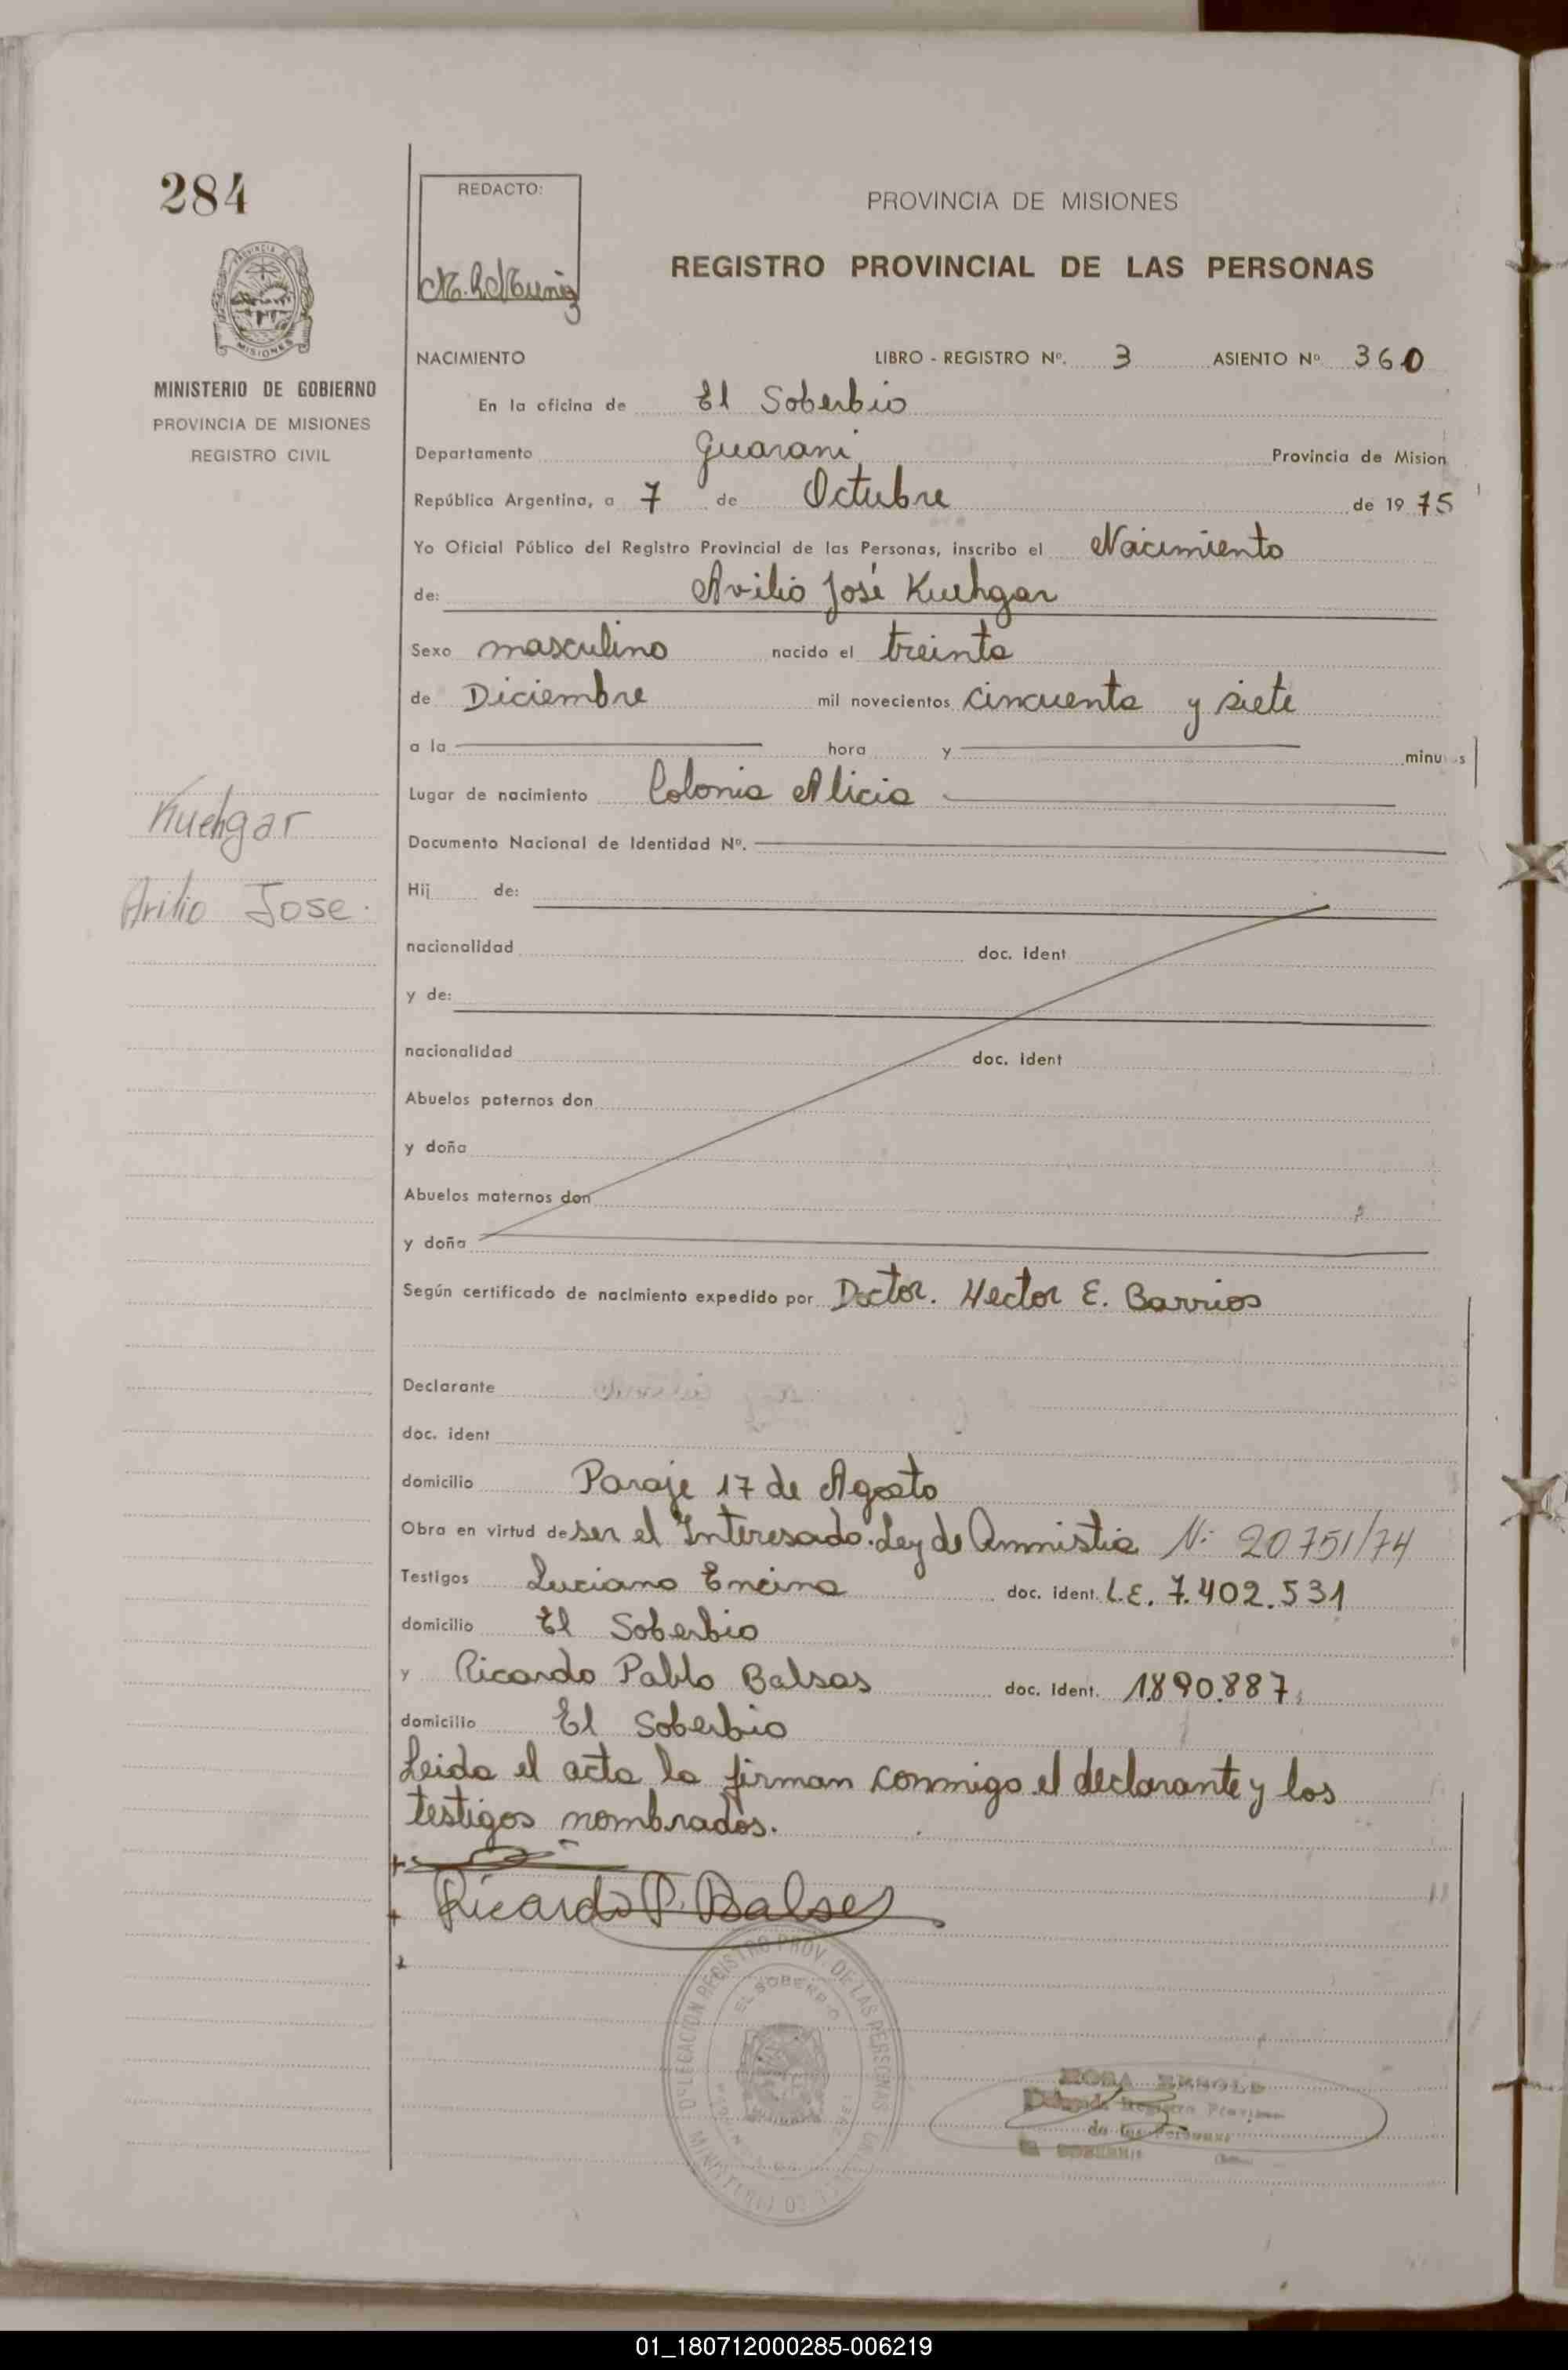 284
REDACTO:
PROVINCIA DE MISIONES
REGISTRO PROVINCIAL DE LAS PERSONAS
MISIONES
MINISTERIO DE GOBIERNO
PROVINCIA DE MISIONES
REGISTRO CIVIL
NACIMIENTO LIBRO - REGISTRO Nº. 3 ASIENTO Nº 360
En la oficina de El Soberbio
Departamento Guarani Provincia de Mision
República Argentina, a 7 de Octubre de 19 75
Yo Oficial Público del Registro Provincial de las Personas, inscribo el Nacimiento
de: Avilio José Kuehgar
Sexo masculino nacido el treinta
de Diciembre mil novecientos cincuenta y siete
a la hora y minu s
Lugar de nacimiento Colonia Alicia
Kuehgar
Documento Nacional de Identidad Nº.
Avilio Jose.
Hij de:
nacionalidad doc. ident
y de:
nacionalidad doc. ident
Abuelos paternos don
y doña
Abuelos maternos don
y doña
Según certificado de nacimiento expedido por Doctor. Hector E. Barrios
Declarante
doc. ident
domicilio Paraje 17 de Agosto
Obra en virtud de ser el Interesado. Ley de Amnistia Nº 20751/74
Testigos Luciano Encina doc. ident. L.E. 7.402.531
domicilio El Soberbio
y Ricardo Pablo Balsas doc. ident. 1.890.887
domicilio El Soberbio
Leida el acta la firman conmigo el declarante y los
testigos nombrados.
Ricardo P. Balsas
DELEGACION REGISTRO PROV. DE LAS PERSONAS
EL SOBERBIO
MINISTERIO DE
ROSA
Registro
de las Personas
01_180712000285-006219